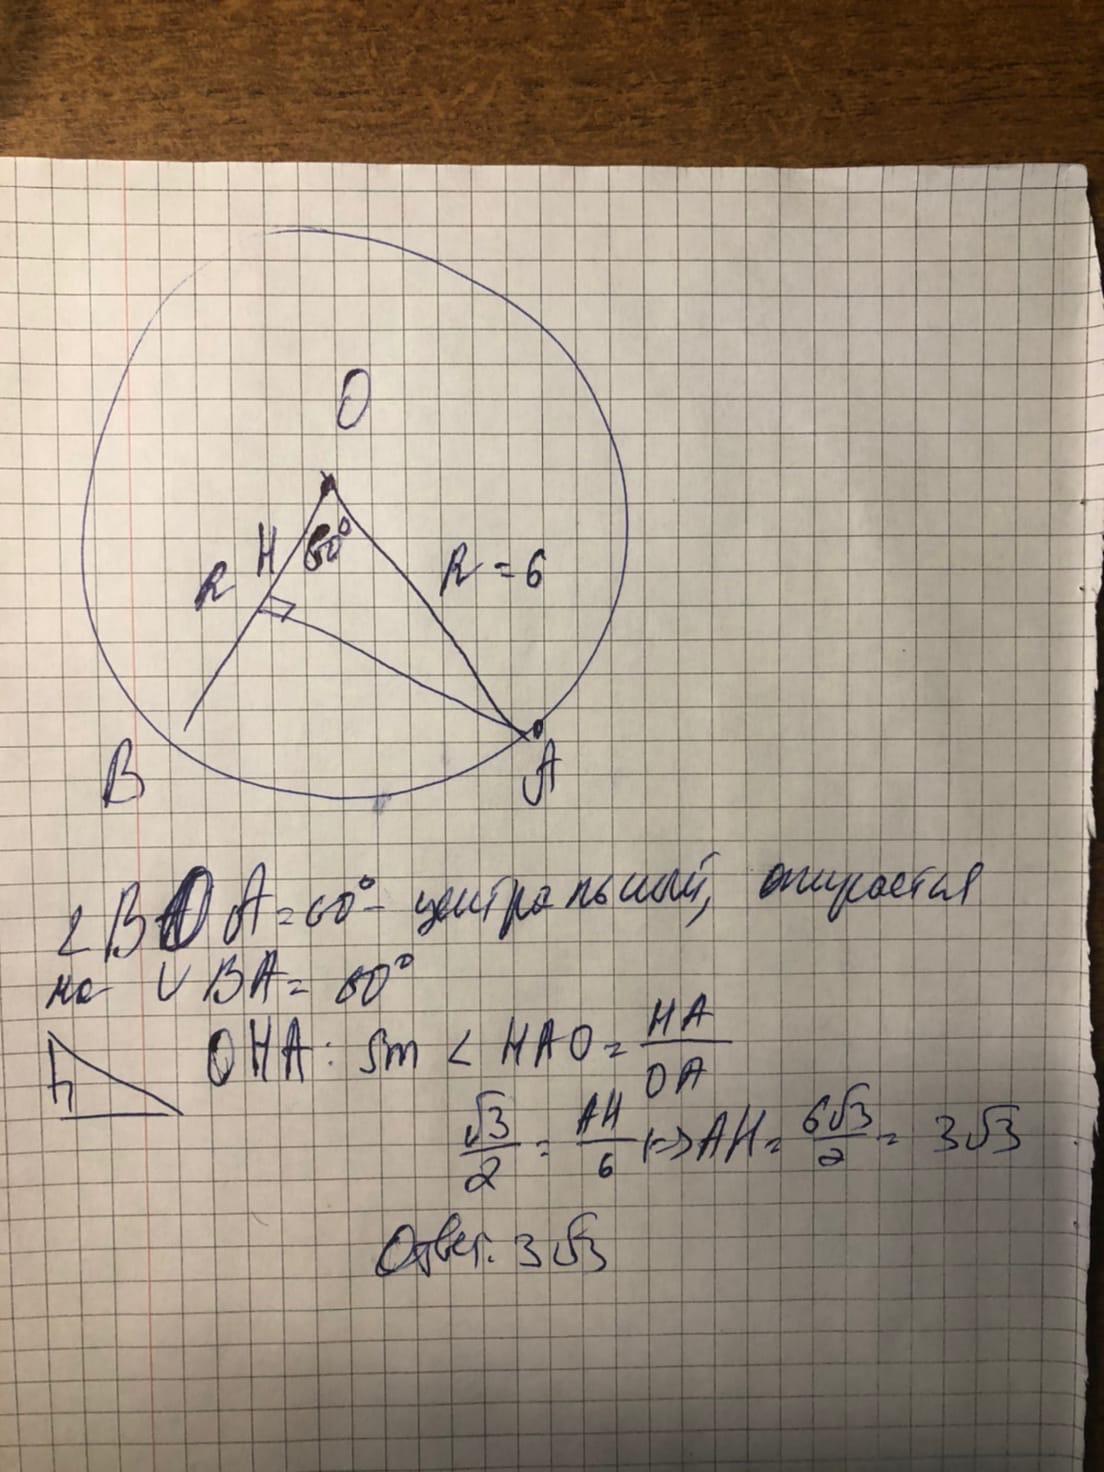 O
H 60°
R
R = 6
B
A
∠BOA = 60° - центральный, опирается
на ∪ BA = 60°
OHA: sin < HAO = HA / OA
√3/2 = AH/6 |=> AH = 6√3/2 = 3√3
Ответ. 3√3